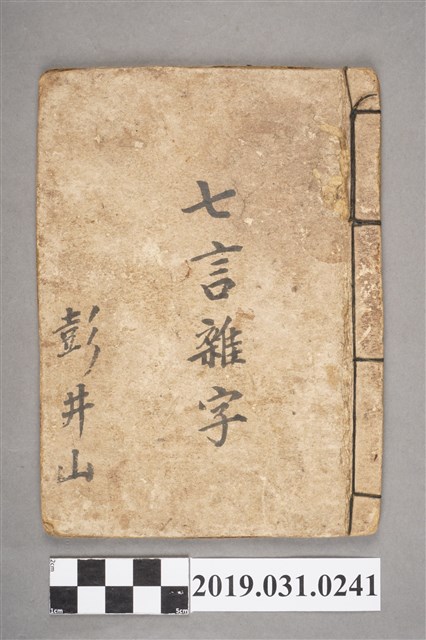 七言雜字
彭井山
2cm
1cm
5cm
2019.031.0241